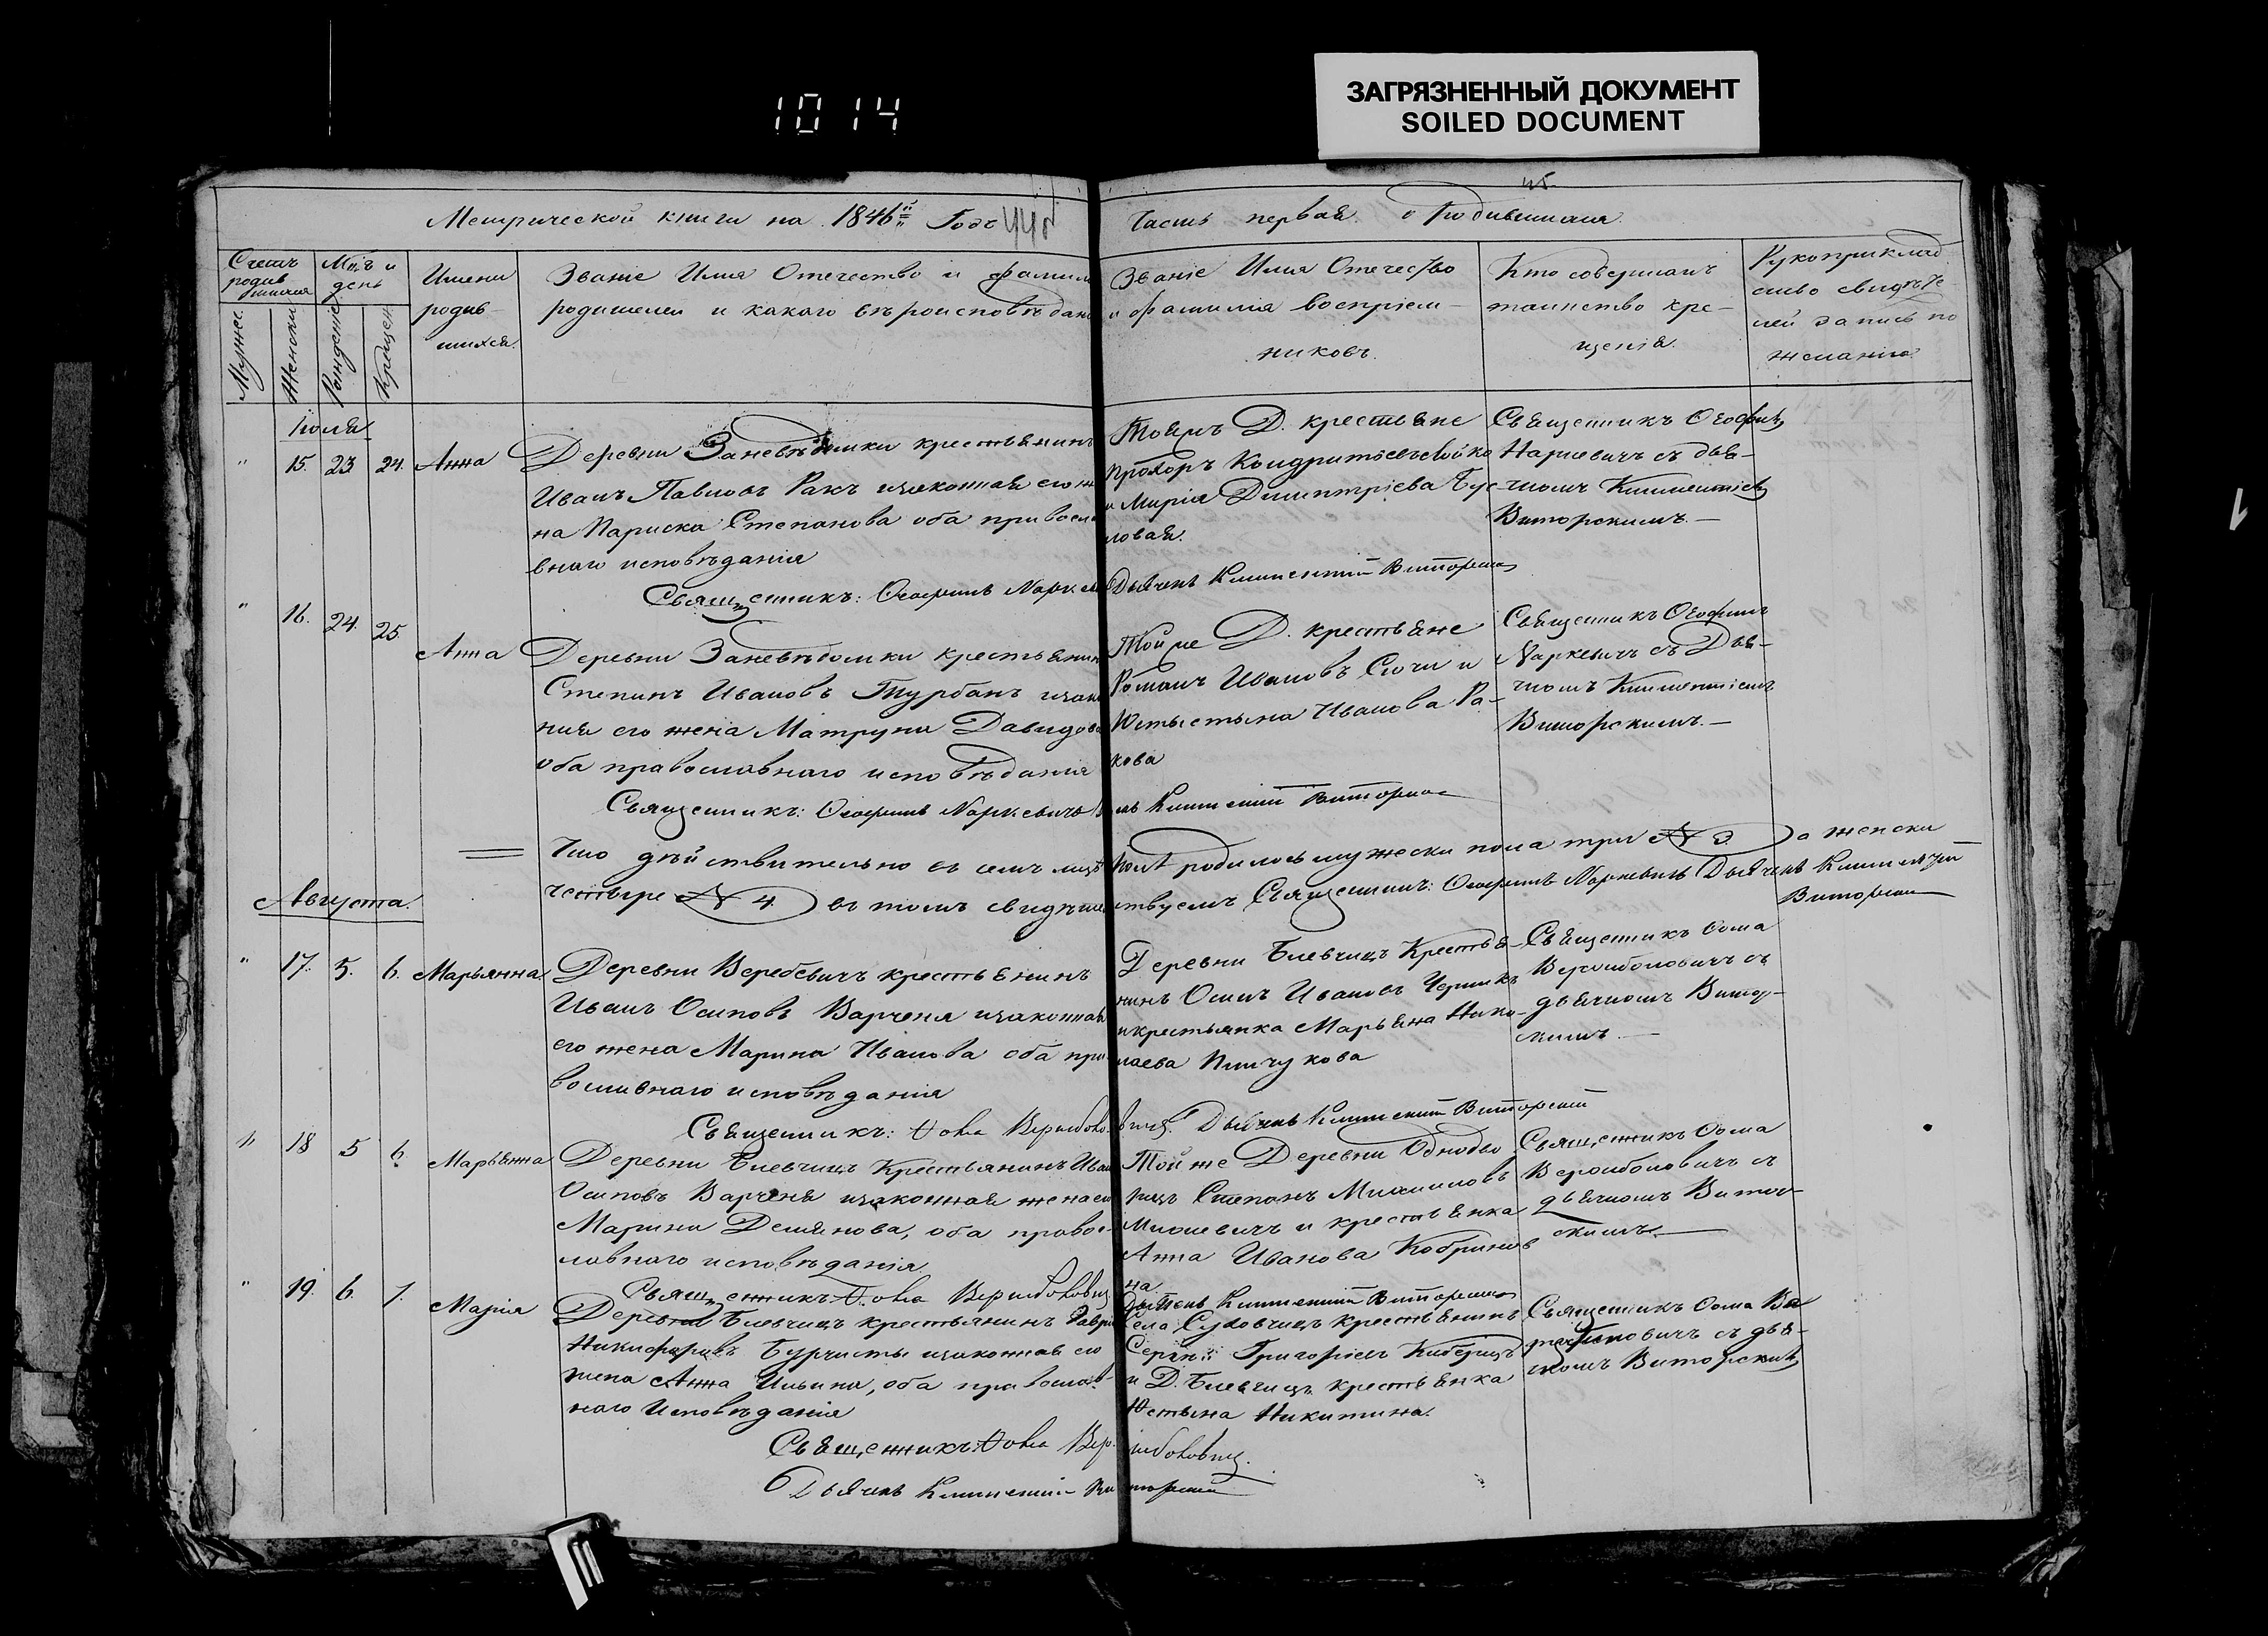 1014
ЗАГРЯЗНЕННЫЙ ДОКУМЕНТ
SOILED DOCUMENT
Метрической книги на 1846й Годъ
Часть первая о Родившихся.
45
Счетъ родив шихся
Мцъ и день
Имена родив- шихся.
Званіе Имя Отечество и фамилі
родителей и какого вѣроисповѣдан
Званіе Имя Отечество
и фамилія воспріем-
никовъ.
Кто совершалъ
таинство кре-
щенія.
Рукоприклад
ство свидѣте-
лей записъ по
желанію
Мужес.
Женски
Рожденіе
Крещен
Іюля
" 15. 23 24. Анна
Деревни крестьянинъ
Иванъ Павловъ Ракъ изаконная его же
на Параска Степанова оба правосла
внаго исповѣданія
Священникъ: Наркев
Прохоръ
и Марія Димитріева
ловая.
Дьячекъ Климентій Виторскій
Д. крестьяне
Священникъ Ѳеофилъ
Наркевичъ съ дья-
чкомъ Климентіемъ
Виторскимъ.—
" 16. 24. 25. Анна
Деревни крестьянин
Степанъ Ивановъ Турбанъ изакон
ная его жена Матруна Давидова
оба православнаго исповѣданія
Священникъ: Ѳеофилъ Наркевичъ
Той же Д. крестьяне
Романъ Ивановъ и
Иванова Ра-
кова
Климентій Виторскій
Священникъ Ѳеофилъ
Наркевичъ съ Дья-
чкомъ Климентіемъ
Виторскимъ.—
Что дѣйствительно въ семъ мцѣ Іюлѣ родилось мужеска пола три № 3 а женска
четыре № 4 въ томъ свидѣтельствуемъ Священникъ: Ѳеофилъ Наркевичъ Дьячекъ Климентій
Виторскій
Августа.
" 17. 5. 6. Марьянна
Деревни Веребевичъ крестьянинъ
Иванъ Осиповъ Варченя изаконная
его жена Марина Иванова оба пра-
вославнаго исповѣданія
Священникъ: Ѳома
Деревни Блевчицъ Крестья-
нинъ Осипъ Ивановъ
икрестьянка Марьяна Нико-
лаева Пинчукова
Дьячекъ Климентій Виторскій
Священникъ Ѳома
съ
дьячкомъ Витор-
скимъ.—
" 18 5 6. Марьянна
Деревни Блевчицъ Крестьянинъ Иван
Осиповъ Варченя изаконная жена его
Марина Демянова, оба правос-
лавнаго исповѣданія.
Священникъ: Ѳома
Той же Деревни Однодво
рецъ Степанъ Михайловъ
и крестьянка
Анна Иванова Кобринов
на.
Дьячекъ Климентій Виторскій
Священникъ Ѳома
съ
дьячкомъ Витор-
скимъ.—
" 19. 6. 7. Марія
Деревни Блевчицъ крестьянинъ Гаврі
Никифоровъ изаконная его
жена Анна Ильина, оба православ-
наго Исповѣданія
Священникъ: Ѳома
Дьячекъ Климентій Виторскій
Села Суховчицъ крестьянинъ
Сергѣй Григорьевъ
и Д. Блевчицъ крестьянка
Никитина.
Священникъ Ѳома
съ дья-
чкомъ Виторскимъ